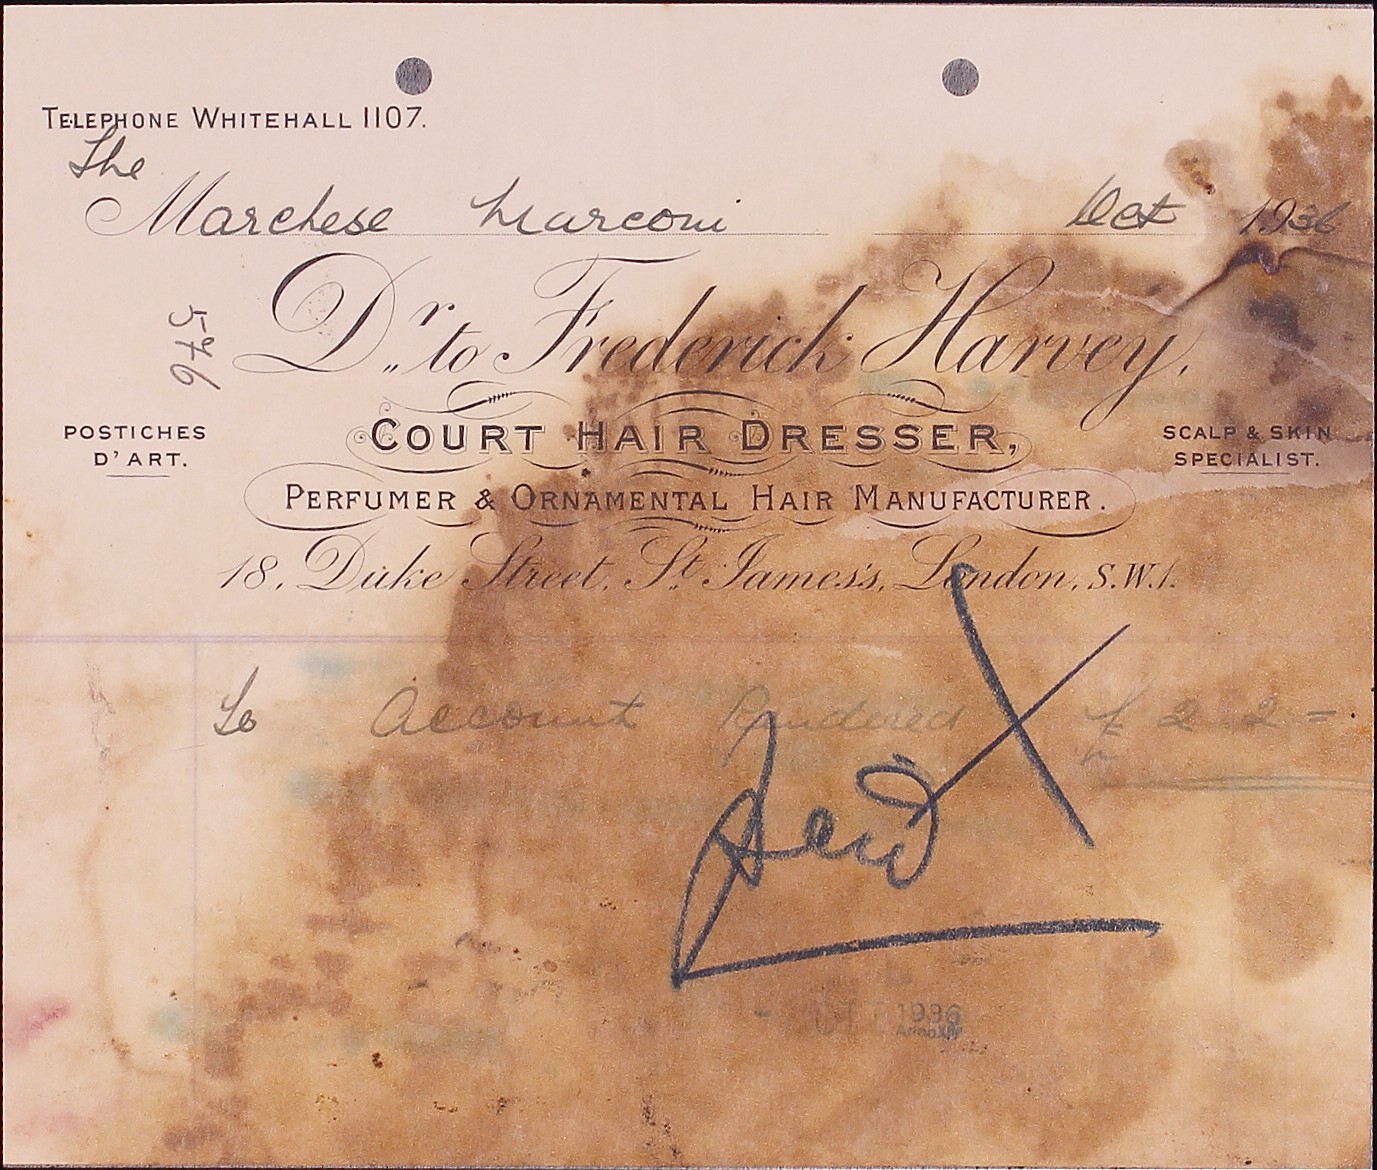 TELEPHONE WHITEHALL 1107.
The
Marchese Marconi Oct 1936
576
Dr. to Frederick Harvey,
COURT HAIR DRESSER,
POSTICHES
D'ART.
SCALP & SKIN
SPECIALIST.
PERFUMER & ORNAMENTAL HAIR MANUFACTURER.
18, Duke Street, St. James's, London, S.W.1.
To Account Rendered £ 2 2 =
1936
Anno XIV